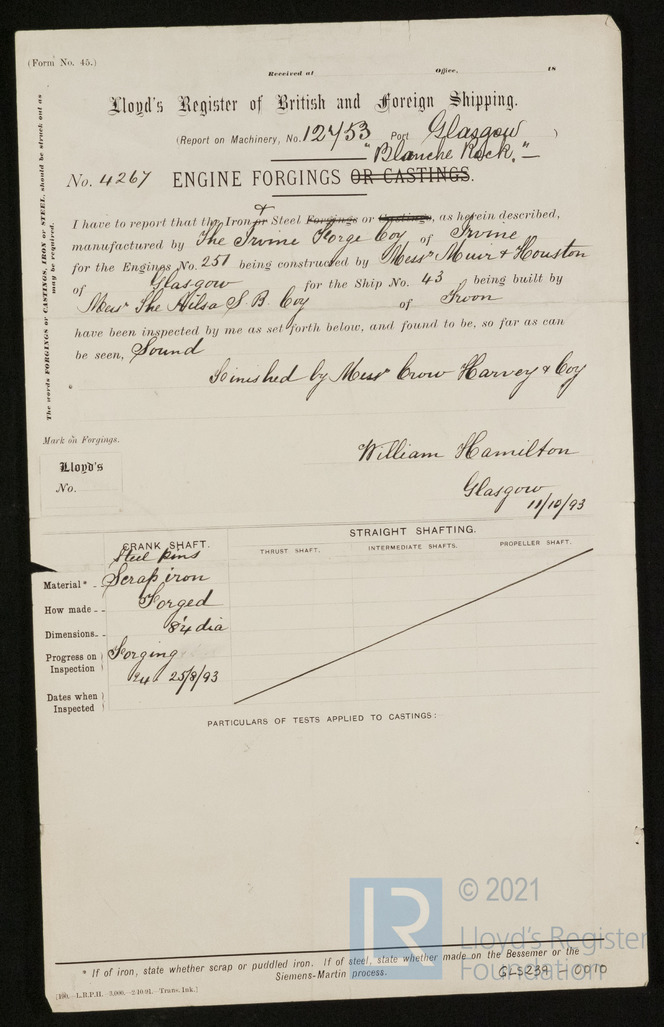 (Form No. 45.)
Received at Office, 18
Lloyd's Register of British and Foreign Shipping.
(Report on Machinery, No. 12453 Port Glasgow )
"Blanche Rock."
No. 4267 ENGINE FORGINGS OR CASTINGS.
I have to report that the Iron or & Steel Forgings or Castings, as herein described,
manufactured by The Irvine Forge Coy of Irvine
for the Engines No. 251 being constructed by Messrs Muir & Houston
of Glasgow for the Ship No. 43 being built by
Messrs The Ailsa S B. Coy of Troon
have been inspected by me as set forth below, and found to be, so far as can
be seen, Sound
Finished by Messrs Crow Harvey & Coy
The words FORGINGS or CASTINGS, IRON or STEEL, should be struck out as
may be required.
Mark on Forgings.
Lloyd's
No.
William Hamilton
Glasgow
11/10/93
CRANK SHAFT.
STRAIGHT SHAFTING.
THRUST SHAFT. INTERMEDIATE SHAFTS. PROPELLER SHAFT.
Steel pins
Material* Scrap iron
How made Forged
Dimensions 8¼ dia
Progress on
Inspection
Forging
25/8/93
Dates when
Inspected
PARTICULARS OF TESTS APPLIED TO CASTINGS:
* If of iron, state whether scrap or puddled iron. If of steel, state whether made on the Bessemer or the
Siemens-Martin process.
GLS239-0010
[180.—L.R.P.H.—3,000.—2-10-91.—Trans. Ink.]
LR
© 2021
Lloyd's Register
Foundation